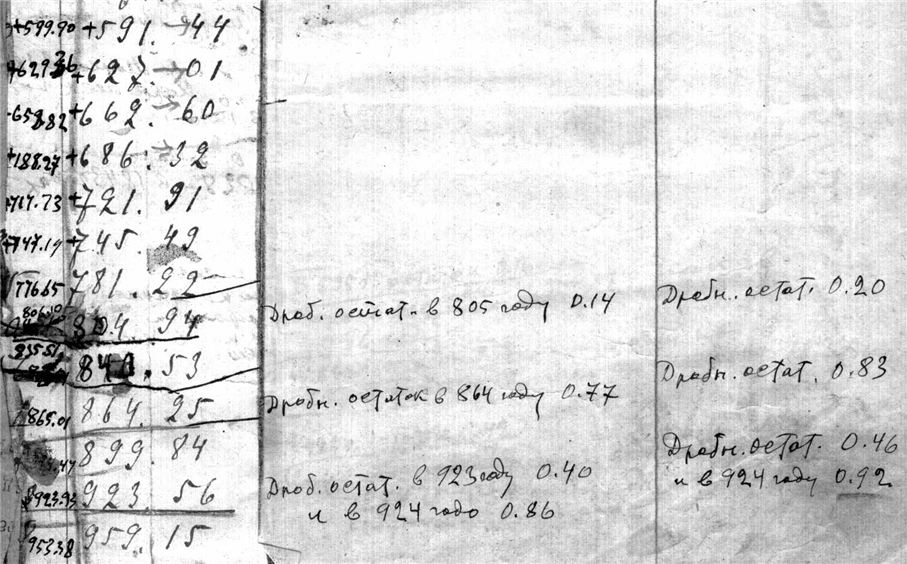 +599.90 +591. 44
+629.36 +627. 01
658.82 +662. 60
+188.27 +686. 32
717.73 +721. 91
+747.19 +745. 49
776.65 781. 22
806.10 804. 94
Дроб. остат. в 805 году 0.14
Дробн. остат. 0.20
835.51 840. 53
Дробн. остаток в 864 году 0.77
Дробн. остат. 0.83
865.01 864. 25
899. 84
Дроб. остат. в 923 году 0.40
и в 924 годо 0.86
Дробн. остат. 0.46
и в 924 году 0.92
923.93 923. 56
953.38 959. 15